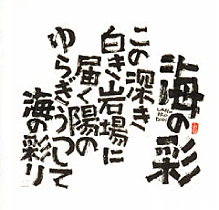 海の彩
この深き
白き岩場に
届く陽の
ゆらぎうつして
海の彩り